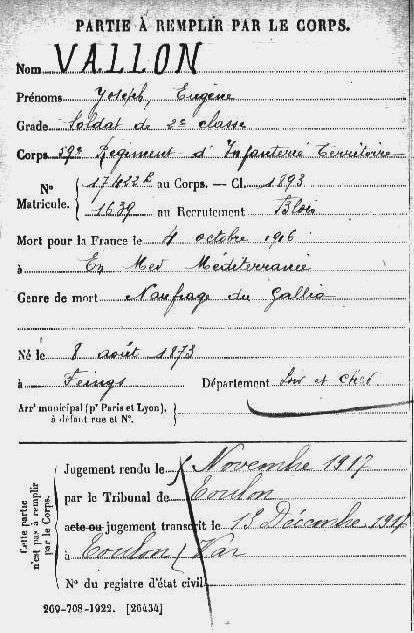 PARTIE À REMPLIR PAR LE CORPS.
Nom VALLON
Prénoms Joseph, Eugène
Grade Soldat de 2e classe
Corps 59e Régiment d'Infanterie Territoire
N° Matricule. 17422 R au Corps. — Cl. 1893
1639 au Recrutement Blois
Mort pour la France le 4 octobre 1916
à En Mer Méditerranée
Genre de mort Naufrage du Gallia
Né le 8 août 1873
à Feings Département Loir et Cher
Arrt municipal (pr Paris et Lyon),
à défaut rue et N°.
Cette partie n'est pas à remplir par le Corps.
Jugement rendu le Novembre 1917
par le Tribunal de Toulon
acte ou jugement transcrit le Décembre 1917
à Toulon Var
N° du registre d'état civil
209-708-1922. [26434]